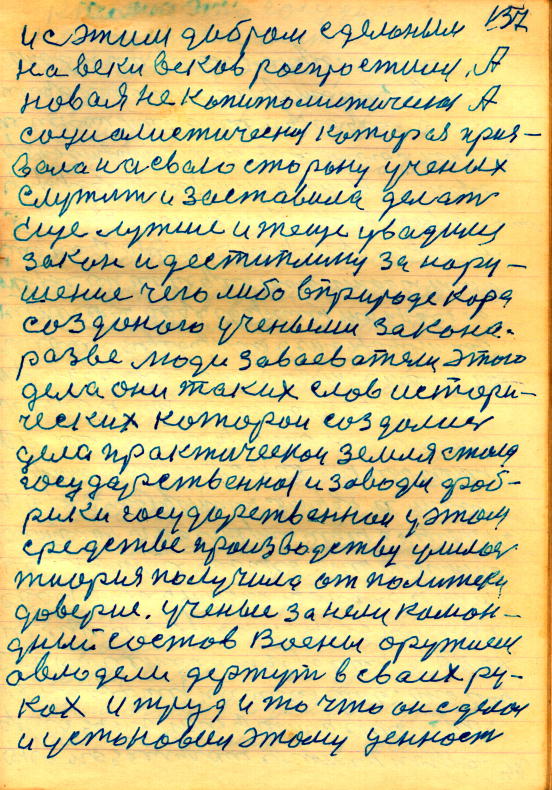 157
и с этим добром сделоным
на веки веков роспростили. А
новая не копитолистическая А
социалистическая которая приз-
вала на сваю сторону ученых
служит и заставила делать
еще лутше и
закон и дестиплину за нару-
шение чего либо в природе кара
созданого учеными закона.
разве люди заваеватели этого
дела они таких слов истори-
ческих которои создолися
дела практическои земля стала
государственная и заводы фаб-
рики государственнои у этом
средстве производству
тиория получила от политеки
доверие. ученые заняли коман-
дный состов Военые оружием
овлодели держут в сваих ру-
ках и труд и то что он сделал
и установил этому ценност